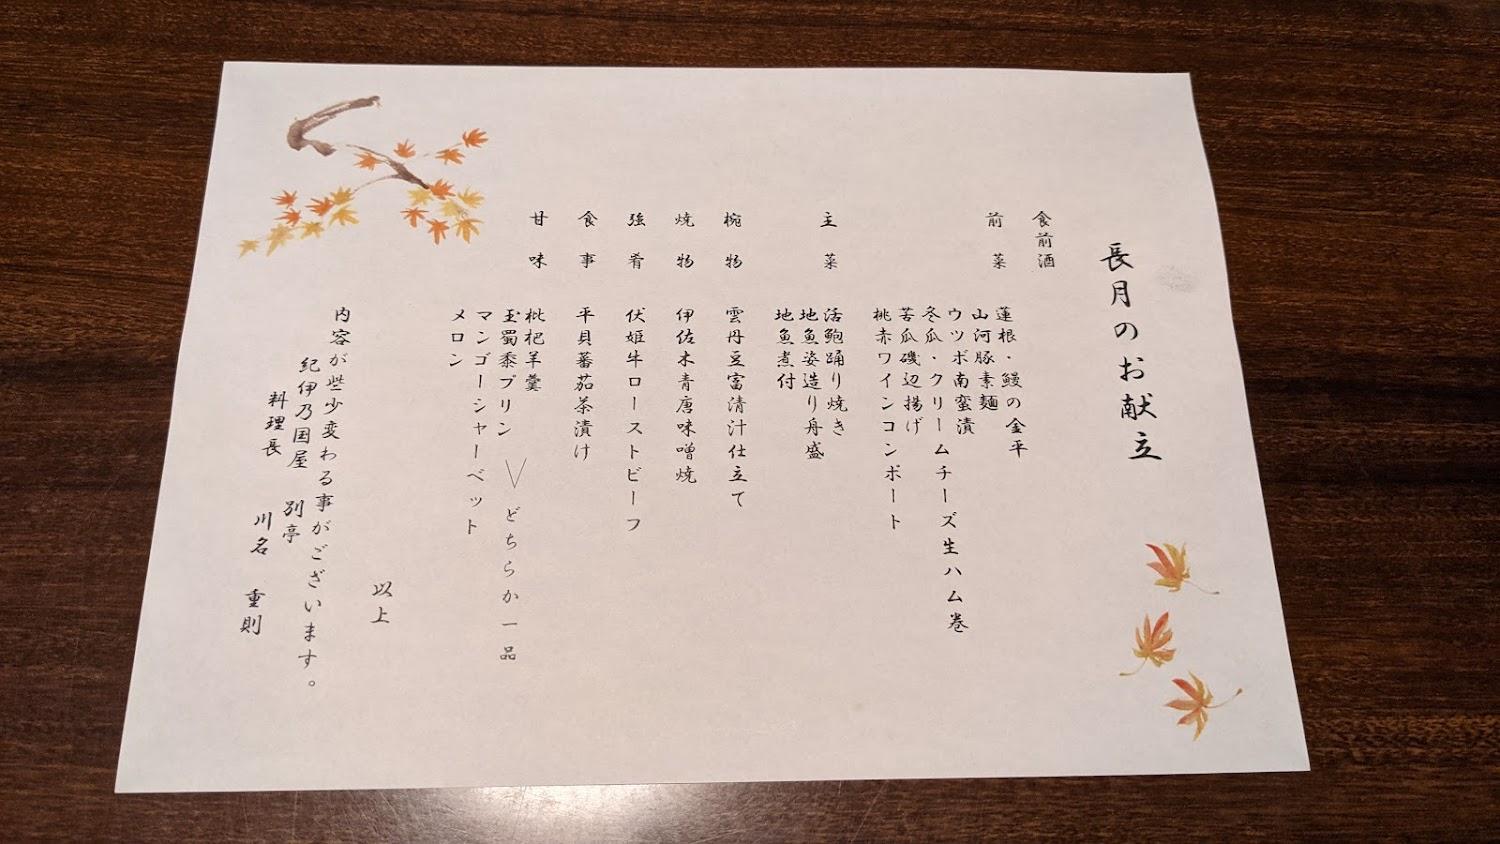 長月のお献立
食前酒
前菜
蓮根・鰻の金平
山河豚素麺
ウツボ南蛮漬
冬瓜・クリームチーズ生ハム巻
苦瓜磯辺揚げ
桃赤ワインコンポート
主菜
活鮑踊り焼き
地魚姿造り舟盛
地魚煮付
椀物
雲丹豆富清汁仕立て
焼物
伊佐木青唐味噌焼
強肴
伏姫牛ローストビーフ
食事
平貝蕃茄茶漬け
甘味
枇杷羊羹
玉蜀黍プリン ＞ どちらか一品
マンゴーシャーベット
メロン
以上
内容が些少変わる事がございます。
紀伊乃国屋 別亭
料理長 川名 重則